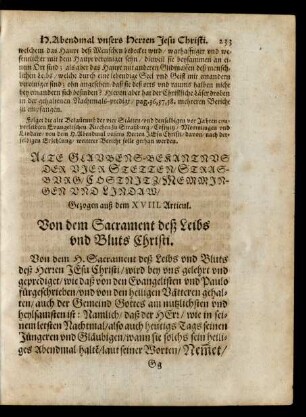 H. Abendmal vnsers Herren Jesu Christi. 233
welchem das Haupt deß Menschen bedecket wird / warhafftiger vnd we-
sentlicher mit dem Haupt vereiniget sein / dieweil sie beysammen an ei-
nem Ort sind: als aber das Haupt mit anderen Gliedmassen deß mensch-
lichen leibs / welche durch eine lebendige Seel vnd Geist mit einander
vereiniget sind: ohn angesehen daß sie deß orts vnd raums halben nicht
bey einander sich befinden? Hievon aber hat der Christliche Läser droben
in der gehaltenen Nachtmals-predig / pag. 36,37,38. mehreren Bericht
zu empfangen.
Folget die alte Bekantnuß der vier Stätten vnd denselbigen vor Jahren einver-
leibten Evangelischen Kirchen zu Straßburg / Costnitz / Memmingen vnd
Lindaw / von dem H. Abendmal vnsers Herren Jesu Christi: daran nach der-
selbigen Erleütung / weiterer Bericht solle gethan werden.
ALTE GLAVBENS-BEKANTNVS
DER VIER STETTEN / STRAS-
BVRG / COSTNITZ / MEMMIN-
GEN VND LINDAW /
Gezogen auß dem XVIII. Articul.
Von dem Sacrament deß Leibs
vnd Bluts Christi.
Von dem H. Sacrament deß Leibs vnd Bluts
deß Herren JEsu Christi / wird bey vns gelehrt vnd
geprediget / wie daß von den Evangelisten vnd Paulo
fürgeschrieben / vnd von den heiligen Vätteren gehal-
ten / auch der Gemeind Gottes am nutzlichsten vnd
heylsamisten ist: Namlich / daß der HErr / wie in sei-
nem letsten Nachtmal / also auch heutigs Tags seinen
Jüngeren vnd Gläubigen / wann sie solchs sein heili-
ges Abendmal halte / laut seiner Worten / Nemmet /
Gg